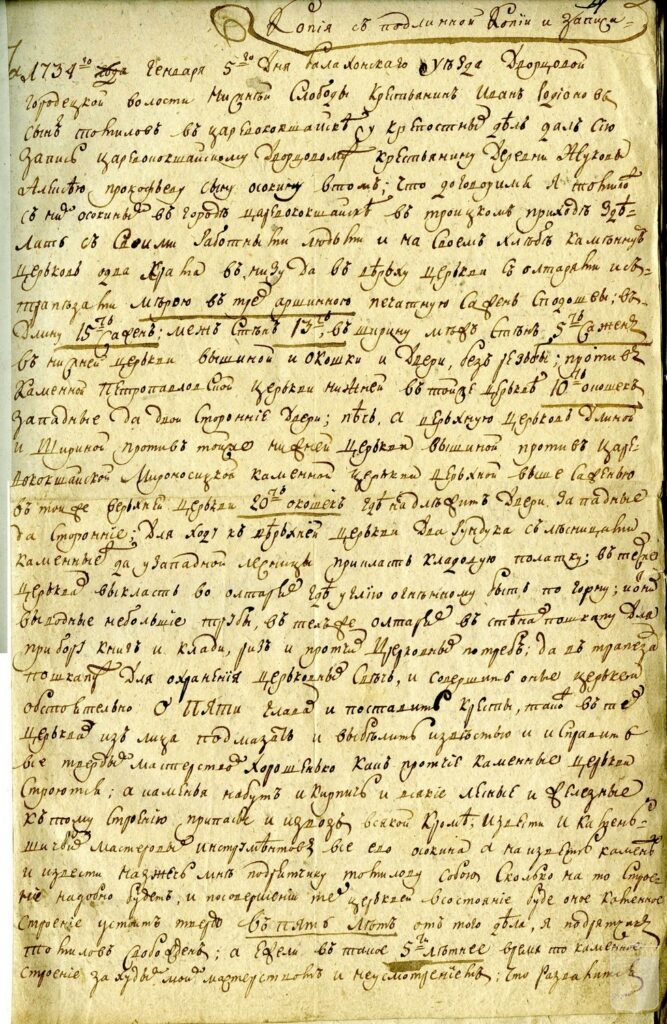 Копія съ подлинной Копіи и записи
1734го года Генваря 5го Дня балахонскаго уѣзда Дворцовой
городецкой волости нижнѣй Слободы Крестьянинъ Иванъ Родіоновъ
сынъ потиловъ въ царевококшайскѣ у крепостныхъ дѣлъ далъ сію
запись царевококшайскому Дворцовому крестьянину Деревни Жуковы
Алексѣю прокофьеву сыну осокину втомъ; Что договорился я потиловъ
съ нимъ осокинымъ въ городѣ царевококшайскѣ въ троицкомъ приходѣ здѣ-
лать съ своими работными людьми и на своемъ хлѣбѣ каменную
церьковь внизу да въ верьху церьковь съ олтарями и съ
трапезами мѣрою въ трех аршинною печатную сажень сподошевы; въ
Длину 15ть саженъ; межъ стѣнъ 13ть, въ ширину межъ стѣнъ 5ть сажен
въ нижней церькви вышиной и окошки и Двери, безъ резьбы; противъ
каменной Петропавловской церькви нижней въ той же церькве 10ть окошекъ
западные да двои сторонніе Двери; а верьхную церьковь Длиной
и шириной противъ той же нижней церькви вышиной противъ царе-
вококшайской Мироносицкой каменной церькви верьхной выше саженью
въ той же верьхней церькви 20ть окошекъ гдѣ надлежитъ Двери западные
да сторонніе; Для ходу къ верьхней церькви Два рундука съ лѣсницами
каменные да у западной лесницы прикласть кладовую полатку; въ техже
церьквахъ выкласть во олтаряхъ гдѣ углію огненному быть по горну; и они
выводные небольшіе трубы, въ техъ же олтаряхъ въ стѣнахъ пошкапу Для
приборѣ книгъ и клади, ризъ и протчихъ церковныхъ потребъ; да въ трапезахъ
пошкапу Для охраненія церьковныхъ свечъ, и совершить оные церькви
обстоятельно о пяти главахъ и поставить кресты, въ техъ
церьквахъ изъ лица подмазать и выбѣлить известью и исправить
все твердымъ мастерствомъ хорошенько какъ протчіе каменные церькви
строются; а каменья и кирпичь и всякіе лесные и железные
къ тому строенію припасы и извозъ всякой кромѣ; извести и каменъ-
щичьихъ мастеровыхъ инструментовъ все ево осокина а на известь камень
и извести нажечь мнѣ подрятчику потилову собою сколько на то строе-
ніе надобно будетъ; и посовершеніи техъ церквей всостояніе буде оное каменное
строеніе устоитъ твердо въ пять лѣтъ отъ того дѣла, я подрятчикъ
потиловъ свобожденъ; а ежели въ такое 5ти лѣтнее время то каменное
строеніе за худымъ моимъ мастерствомъ и неусмотреніемъ; что развалится